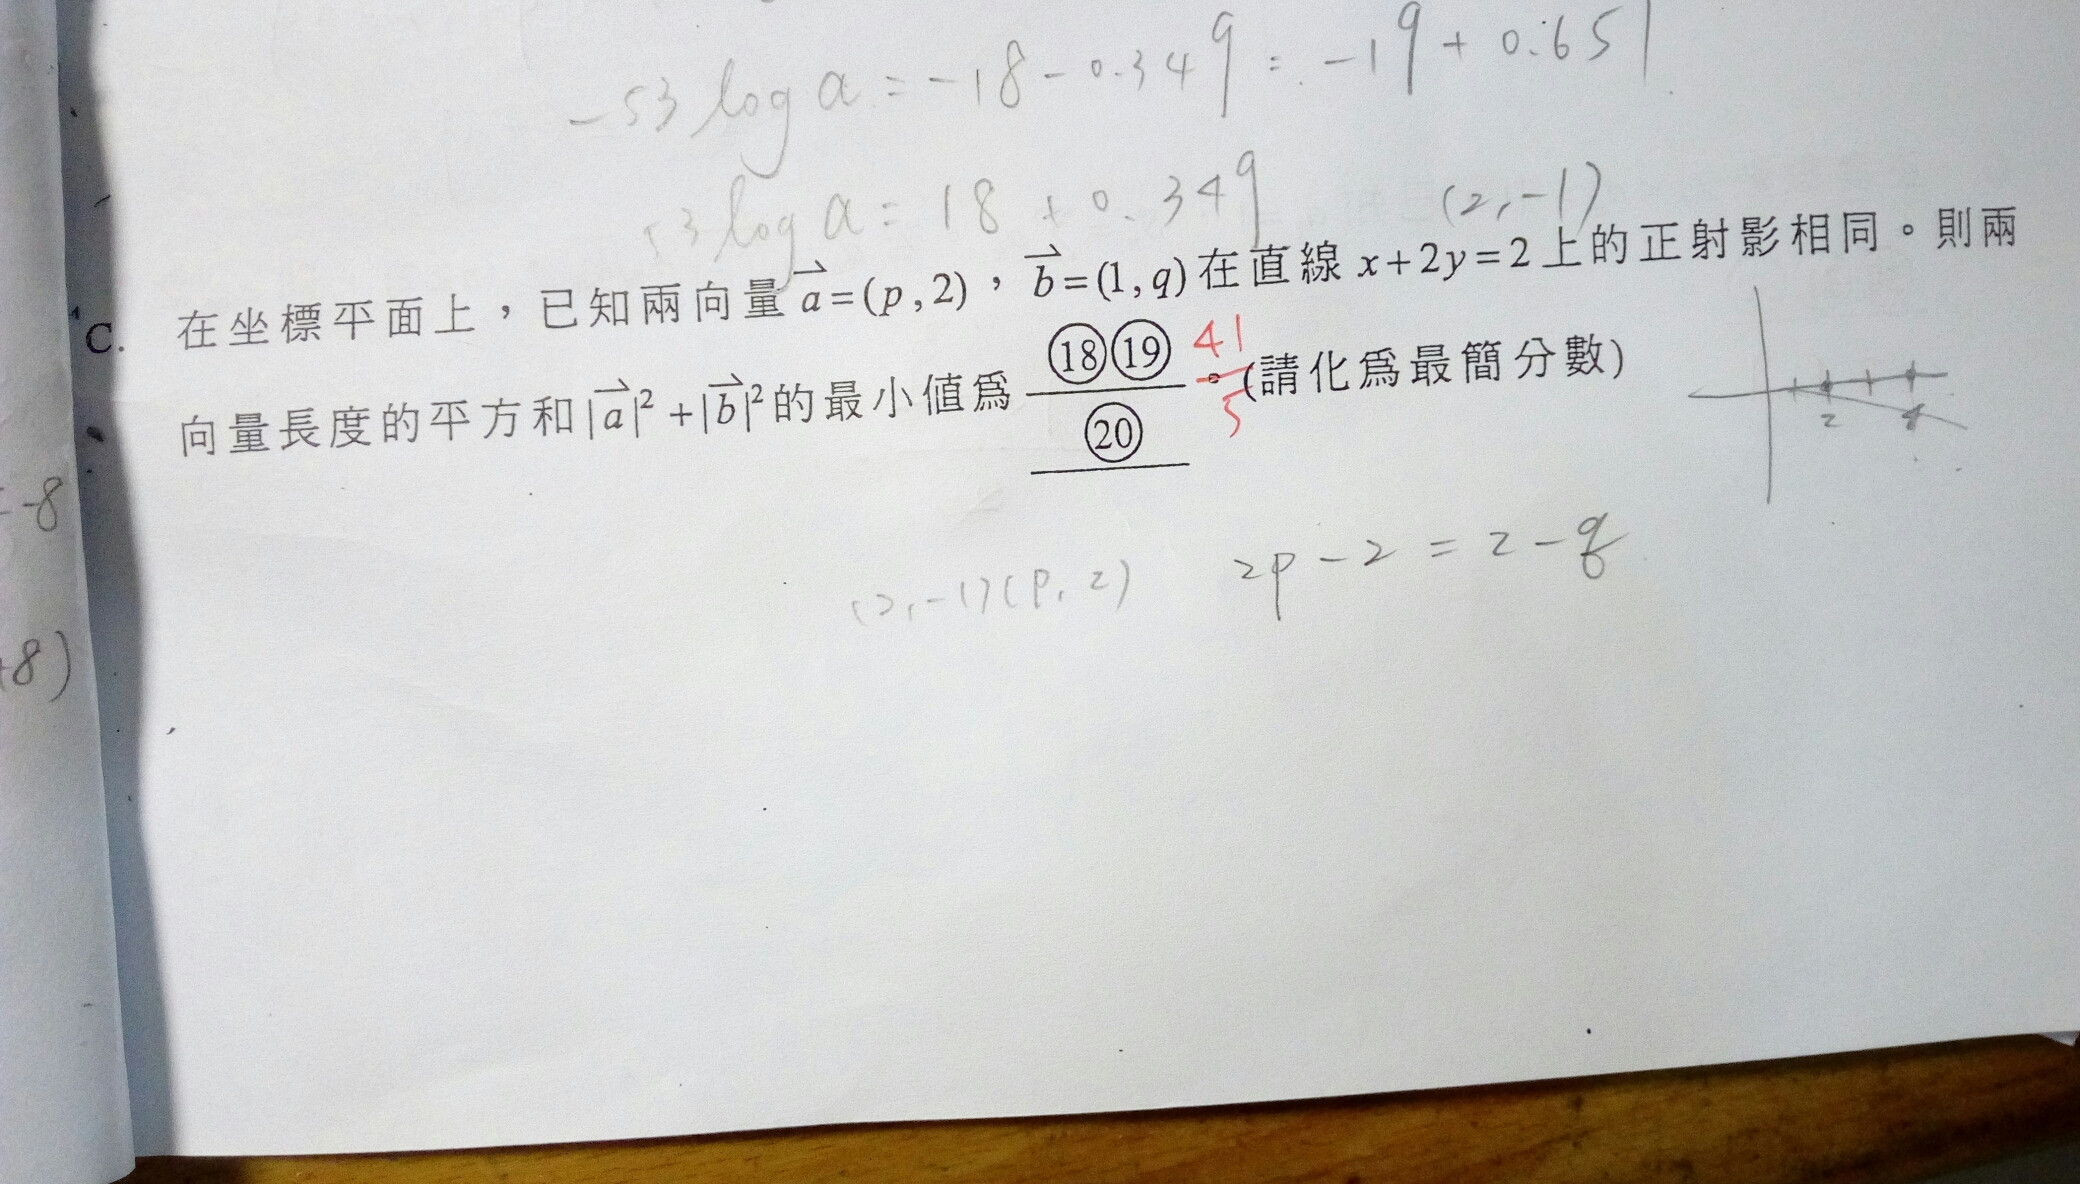 -53 log a = -18 - 0.349 = -19 + 0.651
53 log a = 18 + 0.349
(2, -1)
C. 在坐標平面上，已知兩向量 a=(p,2)，b=(1,q) 在直線 x+2y=2 上的正射影相同。則兩
向量長度的平方和 |a|² + |b|² 的最小值為 ⑱⑲/⑳ 。(請化為最簡分數)
41/5
2
4
= -8
(2, -1)(p, 2)
2p - 2 = 2 - q
+8)